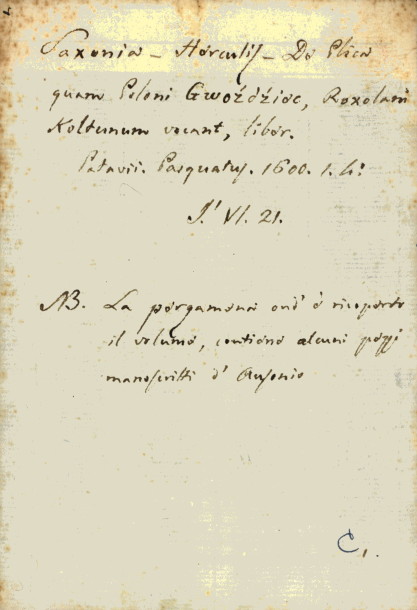 Saxonia - Herculis - De Plica
quam Poloni Gwoźdźiec, Roxolani
Koltunum vocant, liber.
Patavii. Pasquatus. 1600. 1. 4.º
J.' VI. 21.
NB. La pergamena ond' è ricoperto
il volume, contiene alcuni pezzi
manoscritti d' Ausonio
C,